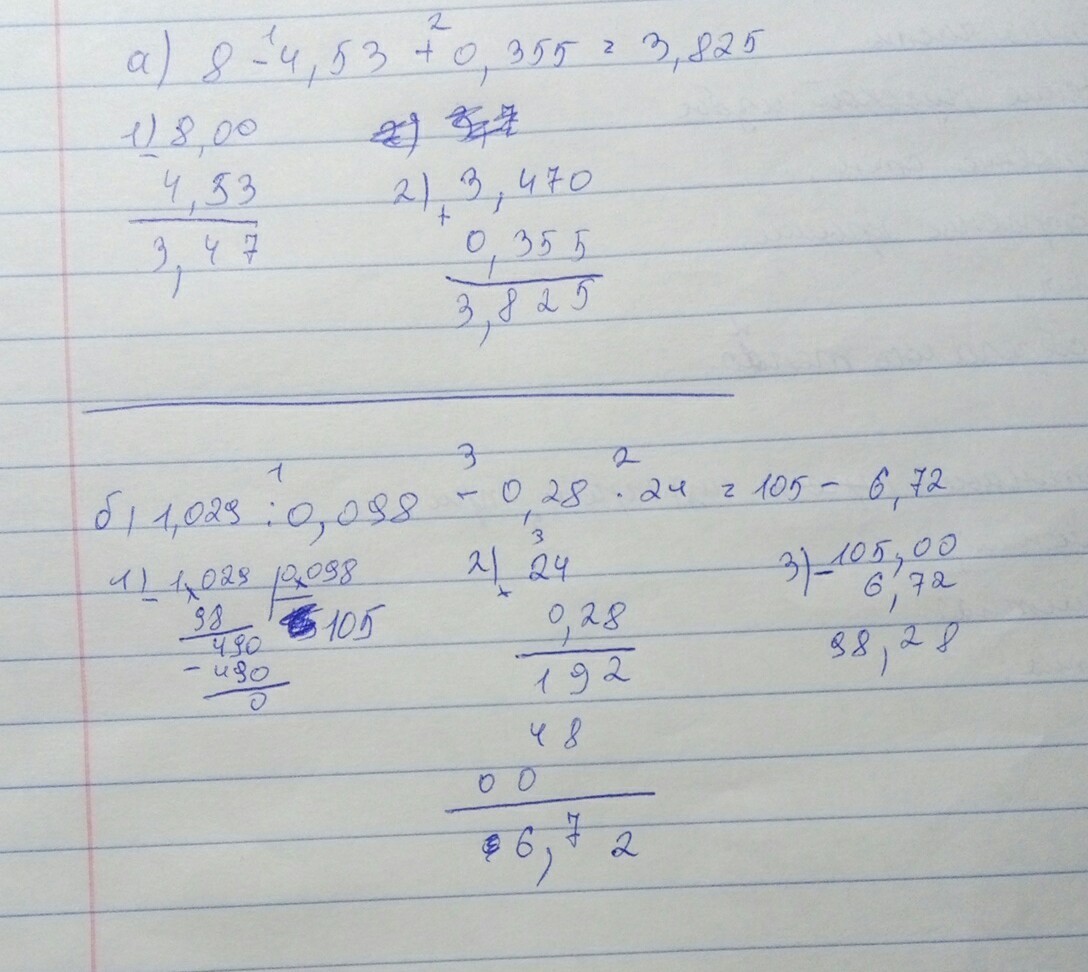 1 2
а) 8 - 4,53 + 0,355 = 3,825
1) 8,00
- 4,53
3,47
2) + 3,470
0,355
3,825
1 3 2
б) 1,029 : 0,098 - 0,28 · 24 = 105 - 6,72
1) - 1,029 0,098
98 105
490
- 490
0
2) x 24
3
0,28
192
48
00
6,72
3) - 105,00
6,72
98,28